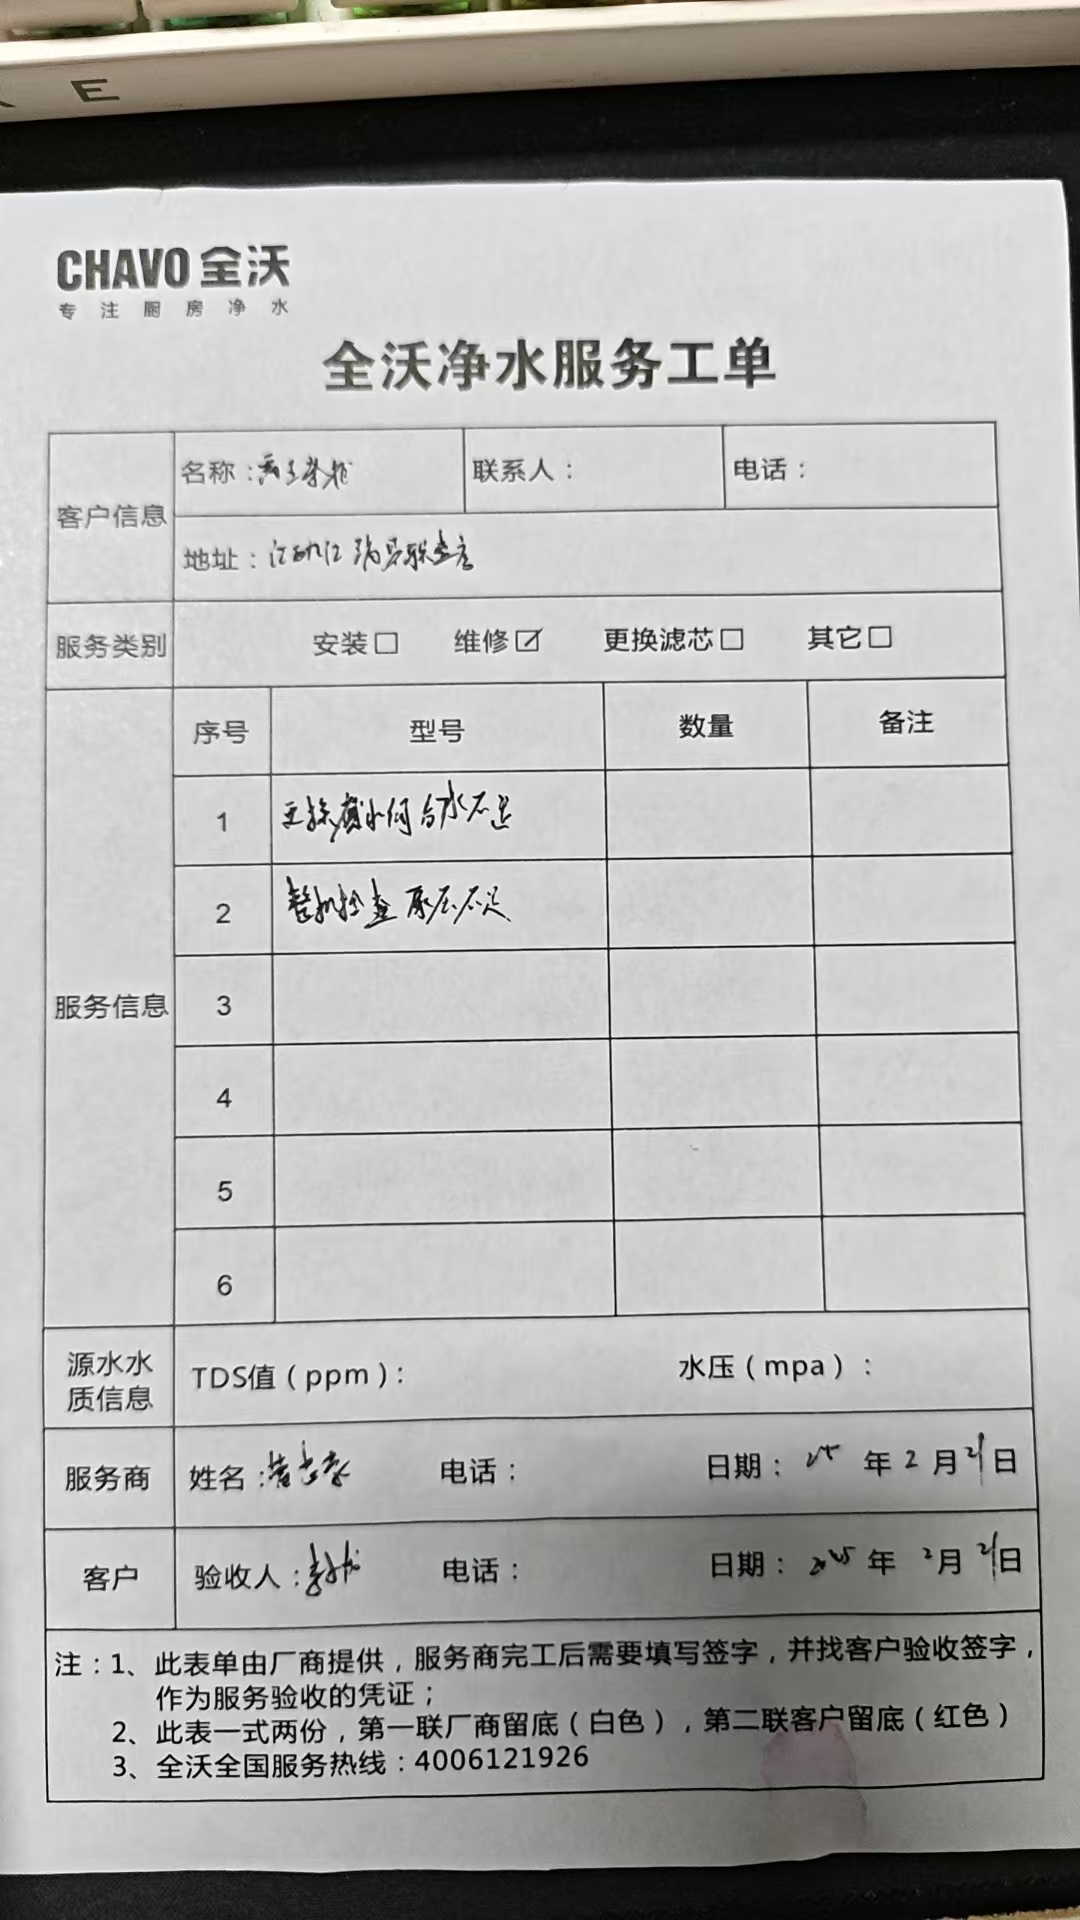 E
CHAVO 全沃
专注厨房净水
全沃净水服务工单
客户信息
名称：
联系人：
电话：
地址：江西九江瑞昌
服务类别
安装□ 维修☑ 更换滤芯□ 其它□
服务信息
序号 型号 数量 备注
1 水不足
2 整机检查 水压不足
3
4
5
6
源水水
质信息
TDS值（ppm）： 水压（mpa）：
服务商
姓名： 电话： 日期：25 年 2 月 21 日
客户
验收人： 电话： 日期：2025 年 2 月 21 日
注：1、此表单由厂商提供，服务商完工后需要填写签字，并找客户验收签字，
作为服务验收的凭证；
2、此表一式两份，第一联厂商留底（白色），第二联客户留底（红色）
3、全沃全国服务热线：4006121926